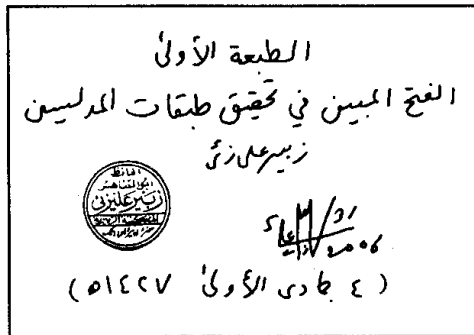 الطبعة الأولىٰ
الفتح المبين في تحقيق طبقات المدلسين
زبير علي زئي
الحافظ
زبير عليزئي
31/
2006
( ٤ جمادى الأولىٰ ١٤٢٧ ه )